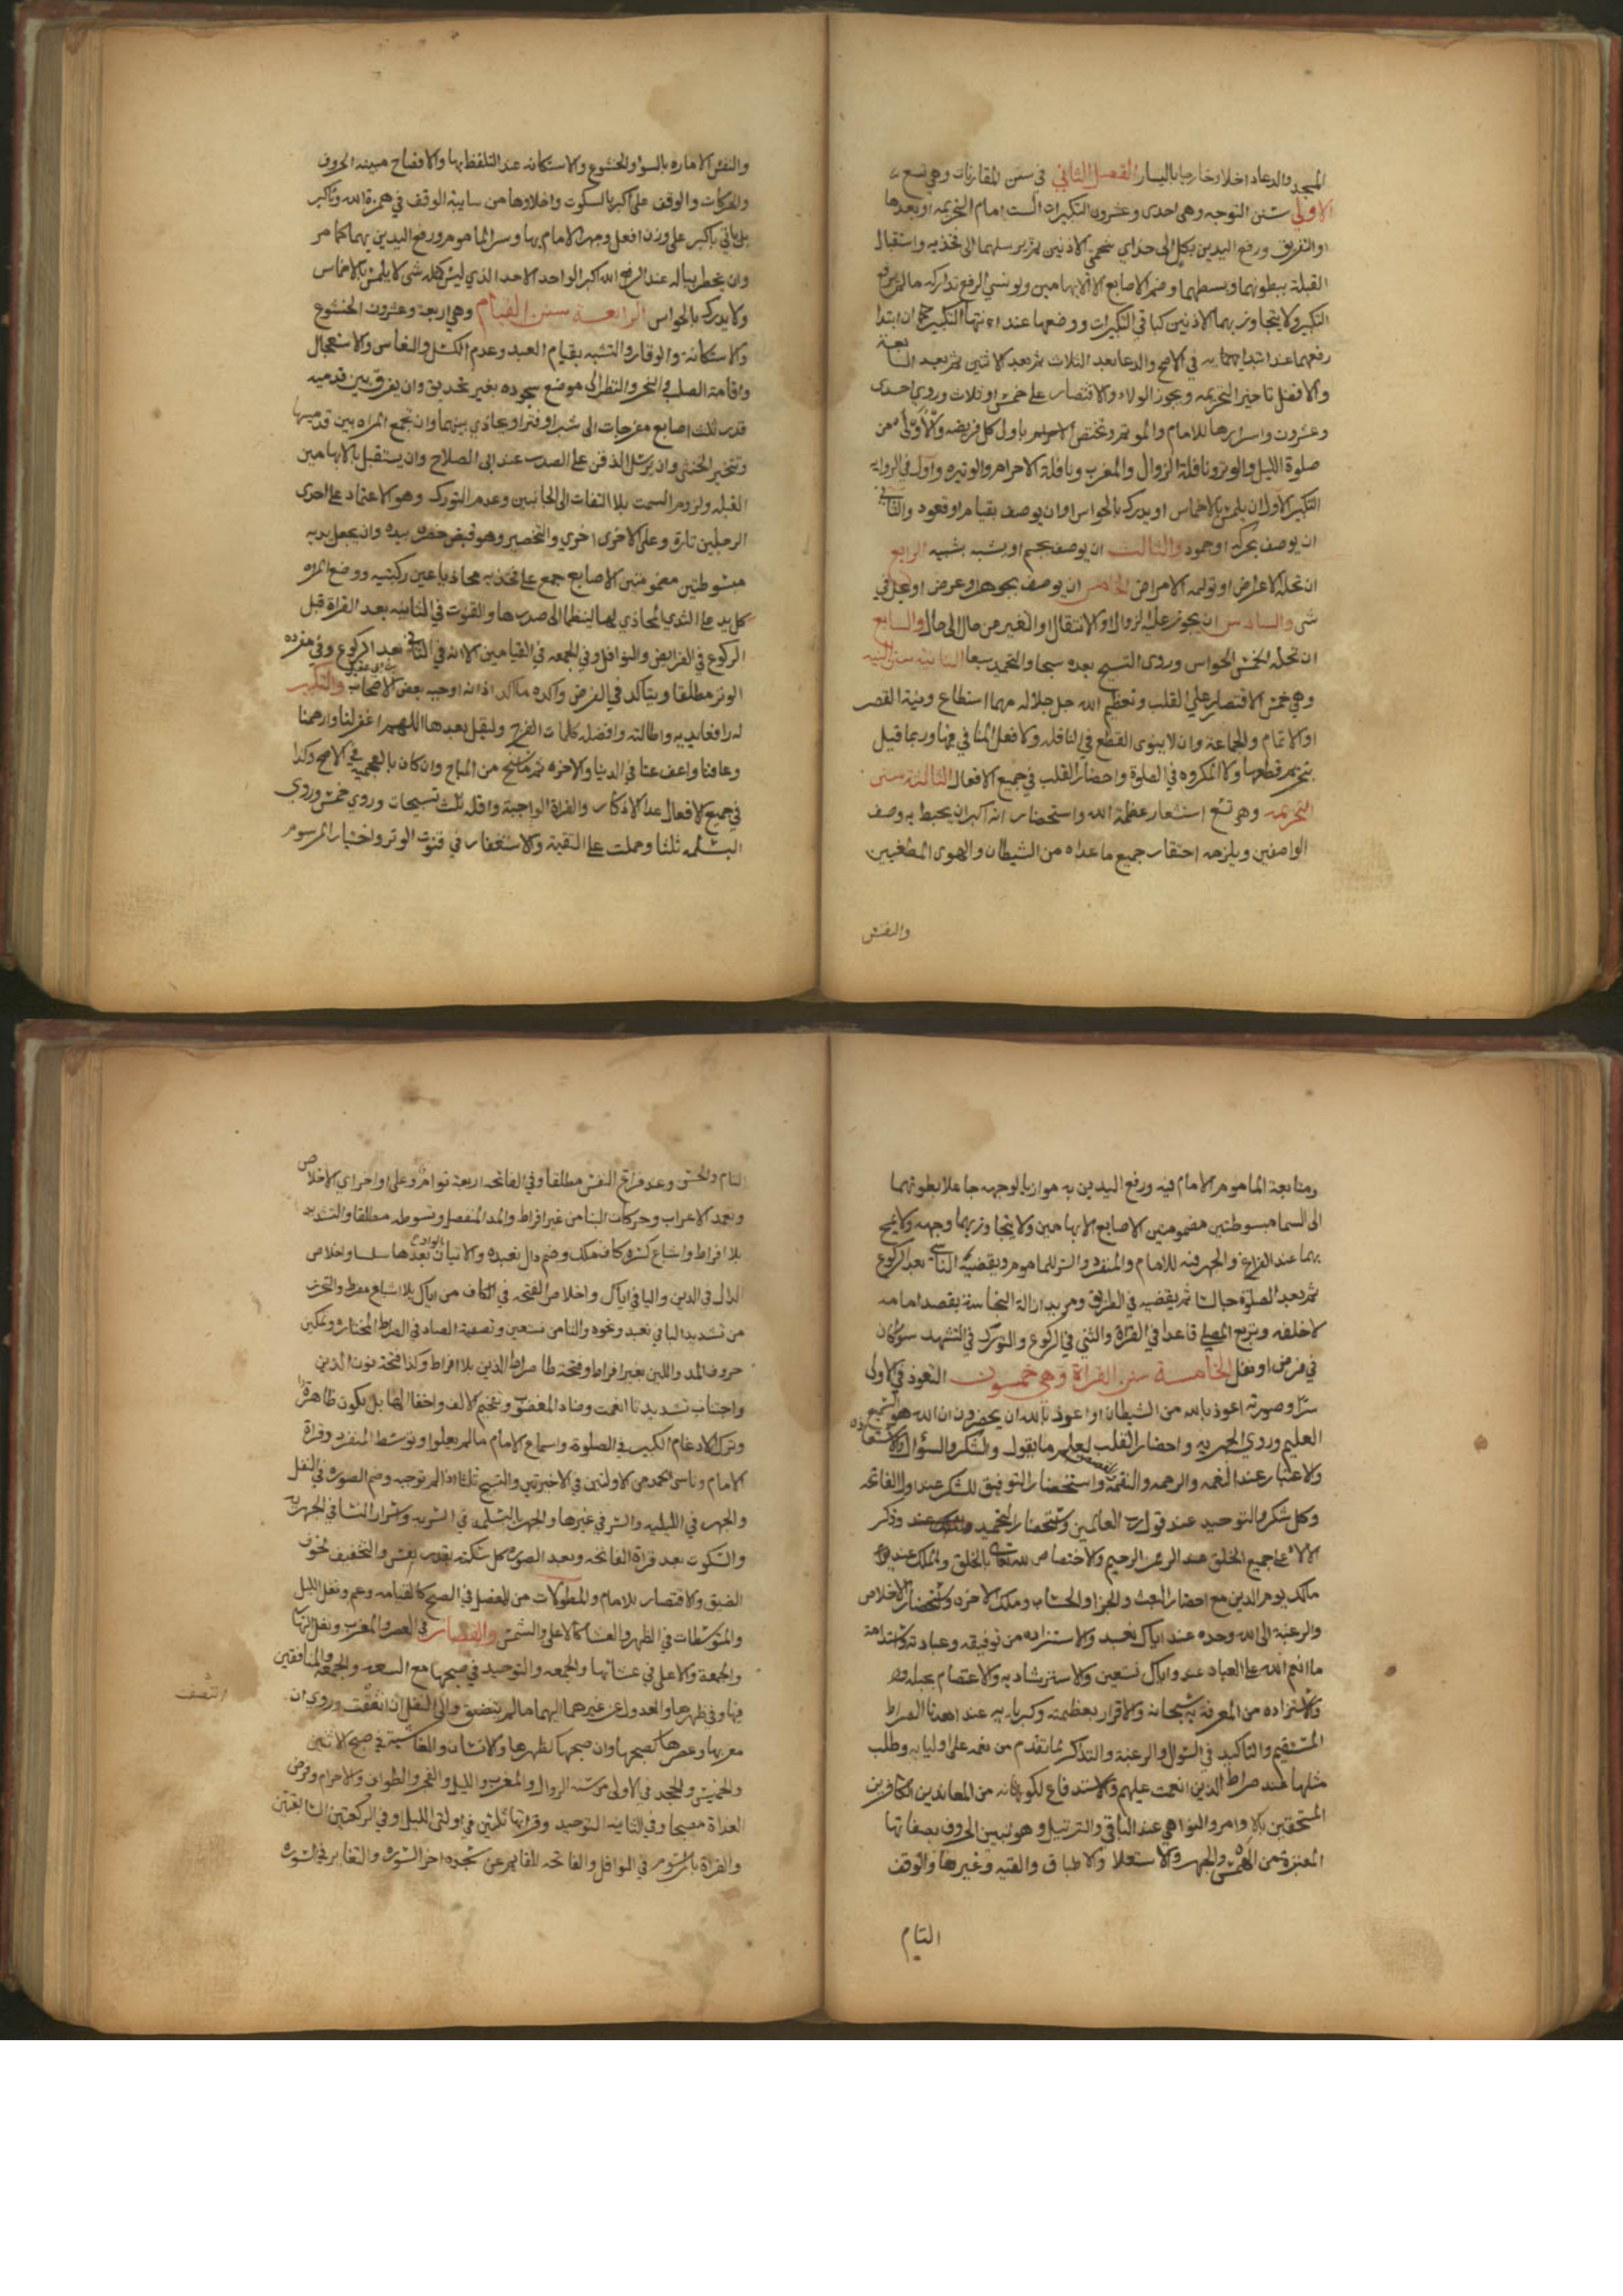 المسجد والدعاء داخلا وخارجا باليسار الفصل الثاني في سنن المقارنات وهي تسع
الاولى سنن التوجه وهي احدى وعشرون التكبيرات الست امام التحريمه او بعدها
او التفريق ورفع اليدين بكل الى حذاي شحمتي الاذنين ثم يرسلهما الى فخذيه واستقبال
القبلة ببطونهما وبسطهما وضم الاصابع الا الابهامين ولو نسي الرفع تداركه ما لم يفرغ
التكبير ولا يتجاوز بهما الاذنين كباقي التكبيرات ووضعها عند انتهاء التكبير ان ابتدا
رفعهما عند ابتدائه في الاصح والدعا بعد الثلاث ثم بعد الاثنين ثم بعد السابعة
والافضل تاخير التحريمه ويجوز الولاء والاقتصار على خمس او ثلاث وروي احدى
وعشرون واسرارها للامام والموتم وتختص باول كل فريضه والاولى من
صلوة الليل والوتر ونافلة الزوال والمغرب ونافلة الاحرام والوتيره وتاول في الروايه
التكبير الاول ان يلمس بالاخماس او يدرك بالحواس او ان يوصف بقيام او قعود والثاني
ان يوصف بحركه او جمود والثالث ان يوصف بجسم او يشبه بشبيه الرابع
ان تحله الاعراض او تولمه الامراض الخامس ان يوصف بجوهر او عرض او يحل في
شي والسادس ان يجوز عليه الزوال او الانتقال او التغير من حال الى حال والسابع
ان تحله الخمس الحواس وروي التسبيح بعده سبعا والتحميد سبعا الثانية سنن النيه
وهي خمس الاقتصار على القلب وتعظيم الله جل جلاله مهما استطاع ونية القصر
او الاتمام والجماعة وان لا ينوى القطع في النافله ولا فعل المنافي فيها وربما قيل
بتحريم قطعها ولا المكروه في الصلوة واحضار القلب في جميع الافعال الثالثة سنن
التحريمه وهي تسع استشعار عظمة الله واستحضار انه اكبر ان يحيط به وصف
الواصفين ويلزمه احتقار جميع ما عداه من الشيطان والهوى المطغيين
والنفس
والنفس الاماره بالسوا والخشوع والاستكانه عند التلفظ بها والافصاح مبينه الحروف
والحركات والوقف على اكبر بالسكوت واخلاوها من شايبة الوقف في همزة الله وتاكبر
بل ياتي باكبر على وزن افعل وجهر الامام بها وسر الماموم ورفع اليدين بهما كما مر
وان يخطر بباله عند الرفع الله اكبر الواحد الاحد الذي ليس كمثله شي لا يلمس بالاخماس
ولا يدرك بالحواس الرابعة سنن القيام وهي اربعة وعشرون الخشوع
والاستكانة والوقار والتشبه بقيام العبد وعدم الكسل والنعاس والاستعجال
واقامة الصلب والنحر والنظر الى موضع سجوده بغير تحديق وان يفرق بين قدميه
قدر ثلث اصابع مفرجات الى شبر او فتر او يحاذي بينهما وان تجمع المراه بين قدميها
وتتخير الخنثى وان يرسل الذقن على الصدر عند ابي الصلاح وان يستقبل بالابهامين
القبله ولزوم السمت بلا التفات الى الجانبين وعدم التورك وهو الاعتماد على احدى
الرجلين تارة وعلى الاخرى اخرى والتخصير وهو قبض خصره بيده وان يجعل يديه
مبسوطتين مضمومتين الاصابع جمع على فخذيه محاذيا عين ركبتيه ووضع المراه
كل يد على الثدي المحاذي لها لينضما الى صدرها والقنوت في الثانيه بعد القراة قبل
الركوع في الفرايض والنوافل وفي الجمعه في القيامين الا انه في الثاني بعد الركوع وفي مفرده
الوتر مطلقا ويتاكد في الفرض واكده ماكد اذ انه اوجبه بعض الاصحاب والتكبير
له رافعا يديه واطالته وافضله كلمات الفرج وليقل بعدها اللهم اغفر لنا وارحمنا
وعافنا واعف عنا في الدنيا والاخره ثم ما سنح من المباح وان كان بالعجميه في الاصح وكذا
في جميع الافعال عدا الاذكار والقراة الواجبة واقله ثلث تسبيحات وروي خمس وروي
البسمله ثلثا وحملت على التقية والاستغفار في قنوت الوتر واختيار المرسوم
ومتابعة الماموم الامام فيه ورفع اليدين به موازيا لوجهه جاعلا بطونهما
الى السما مبسوطتين مضمومتين الاصابع الا الابهامين ولا يتجاوز بهما وجهه ولا يمسح
بهما عند الفراغ والجهر فيه للامام والمنفرد والسر للماموم ويقضيه الناسي بعد الركوع
ثم بعد الصلوة جالسا ثم يقضيه في الطريق ومريد ازالة النجاسة بقصد امامه
لا خلفه وتربع المصلي قاعدا في القراة والثني في الركوع والتورك في التشهد سوا كان
في فرض او نفل الخامسة سنن القراة وهي خمسون التعوذ في الاولى
سرا وصورته اعوذ بالله من الشيطان او اعوذ بالله ان يحضرون ان الله هو السميع
العليم وروي الجهر به واحضار القلب ليعلم ما يقول والشكر والسوال والاستعاذه
والاعتبار عند النعمه والرحمه والنقمة واستحضار التوفيق للشكر عند اول الفاتحه
وكل شكر والتوحيد عند قوله رب العالمين واستحضار التحميد وذكر
الالاء على جميع الخلق عند الرحمن الرحيم والاختصاص لله تعالى بالخلق والملك عند
مالك يوم الدين مع احضار البعث والجزا والحساب وملك الاخره واستحضار الاخلاص
والرغبة الى الله وحده عند اياك نعبد والاستزاده من توفيقه وعبادته واستدامة
ما انعم الله على العباد عند واياك نستعين والاسترشاد به والاعتصام بحبله
والاستزاده من المعرفة به سبحانه والاقرار بعظمته وكبريايه عند اهدنا الصراط
المستقيم والتاكيد في السوال والرغبة والتذكر لما تقدم من نعمه على اوليايه وطلب
مثلها عند صراط الذين انعمت عليهم والاستدفاع لكونه من المعاندين الكافرين
المستخفين بالاوامر والنواهي عند الباقي والترتيل وهو تبيين الحروف بصفاتها
المعتبرة من الهمس والجهر والاستعلا والاطباق والغنه وغيرها والوقف
التام
التام والحسن وعند فراغ النفس مطلقا وفي الفاتحه اربعة توام وعلى اواخر اي الاخلاص
وتعمد الاعراب وحركات البنا من غير افراط والمد المنفصل وتوسطه مطلقا والتشديد
بلا افراط واشباع كسره كاف ملك وضم دال نعبد والاتيان بالواو بعدها سلسا واخلاص
الدال في الدين واليا في اياك واخلاص الفتحه في الكاف من اياك بلا اشباع مفرط والتحرز
من تشديد البا في نعبد ونحوه والتا من نستعين وتصفية الصاد في الصراط المختاره وتمكين
حروف المد واللين بغير افراط وفتحة طا صراط الذين بلا افراط وكذا فتحة نون الذين
واجتناب تشديد تا انعمت وضاد المغضوب وتفخيم الالف واخفا الها بل يكون ظاهرة
وترك الادغام الكبير في الصلوة واسماع الامام ما لم يعلوا وتوسط المنفرد وقراة
الامام وناسى الحمد من الاولتين في الاخيرتين والتسبيح ثلثا اذا لم توجبه وضم السوره في النفل
والجهر في الليليه والسر في غيرها والجهر بالبسلمه في السريه واسرار النسا في الجهريه
والسكوت بعد قراة الفاتحه وبعد السوره كل سكته بقدر نفس والتخفيف لخوف
الضيق والاقتصار للامام والمطولات من المفصل في الصبح كالقيامه وعم ونفل الليل
والمتوسطات في الظهر والعشا كالاعلى والشمس والقصار في العصر والمغرب ونفل النهار
والجمعة والاعلى في عشائها والجمعه والتوحيد في صبحها والجمعه والمنافقين
فيها وفي ظهرها والعدول عن غيرهما اليهما ما لم يتنصف والى النفل ان انتصفت وروي ان
مغربها وعصرها كصبحها وان صبحها كظهرها والانسان والغاشية في صبح الاثنين
والخميس والجحد في الاولى من سنة الزوال والمغرب والليل والفجر والطواف والاحرام وفرض
الغداة مصبحا وفي الثانيه التوحيد وقراتها ثلثين في اولتى الليل او في الركعتين السابقتين
والقراة بالمرسوم في النوافل والفاتحه للقايم عن سجده اخر السوره والتغاير في السوره
انتصفت